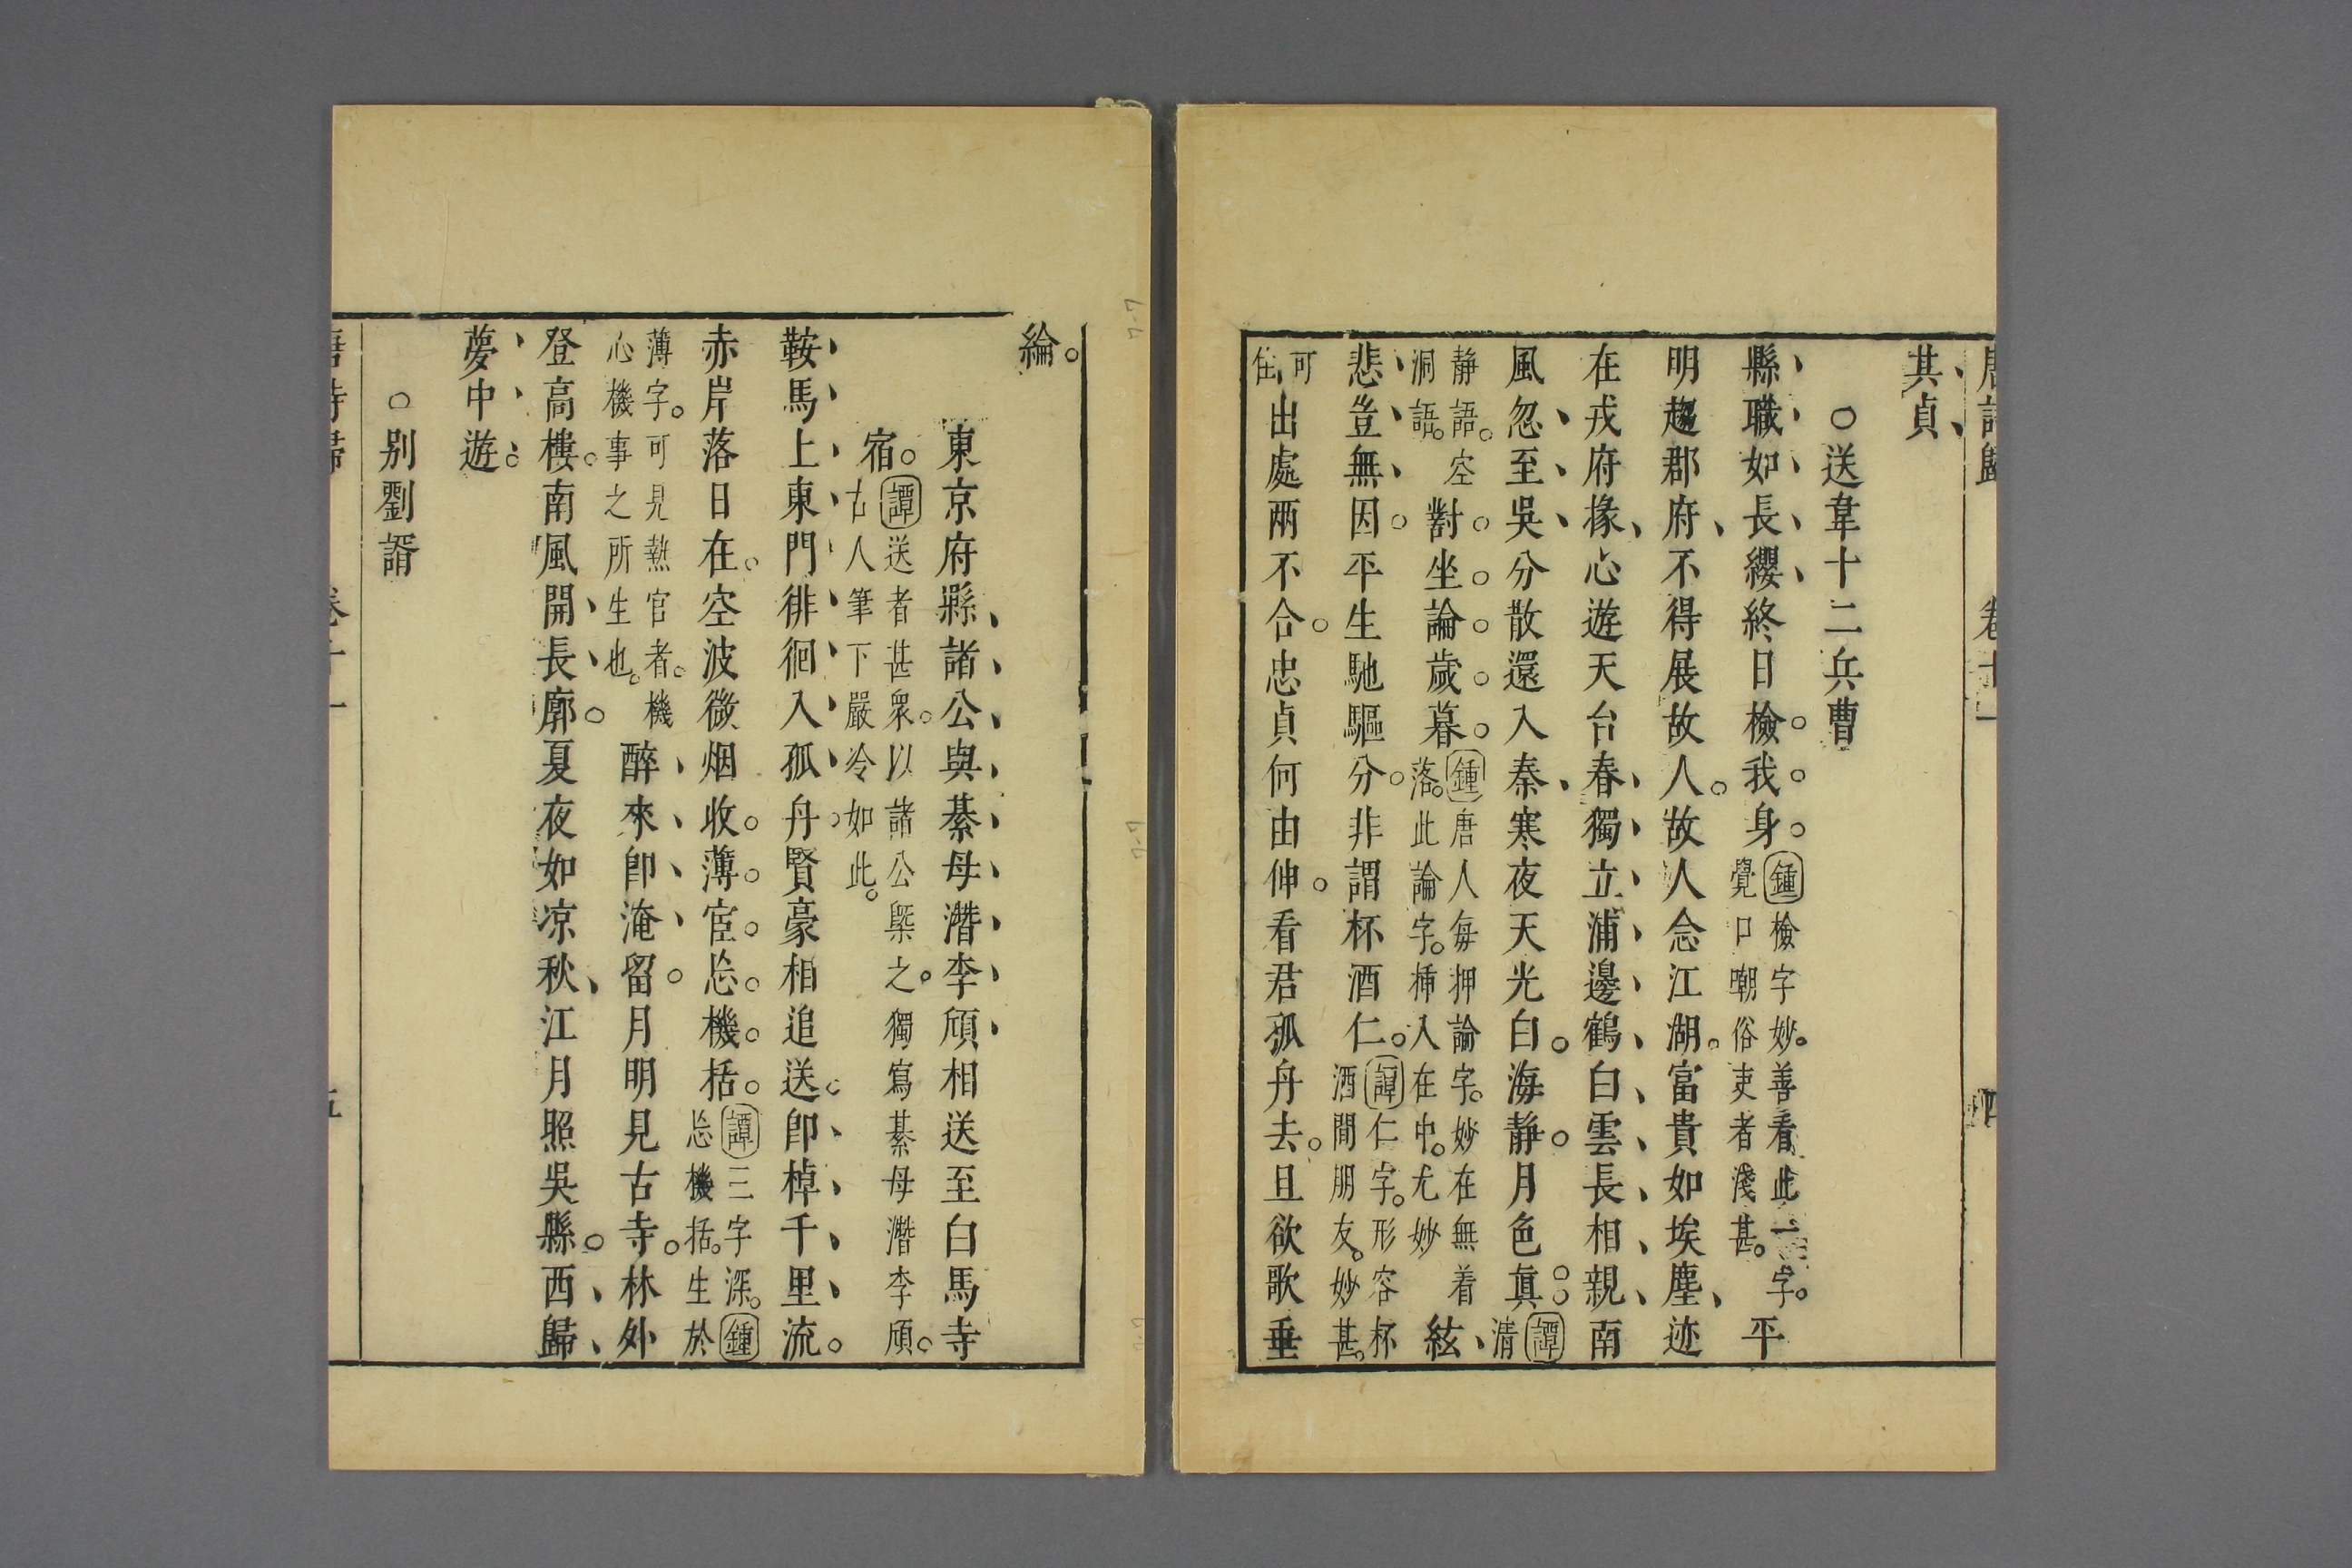 唐詩歸 卷十一 四
其貞
○送韋十二兵曹
縣職如長纓終日檢我身鍾檢字妙善看此一字平
覺口嘲俗吏者淺甚
明趨郡府不得展故人故人念江湖富貴如埃塵迹
在戎府掾心遊天台春獨立浦邊鶴白雲長相親南
風忽至吳分散還入秦寒夜天光白海靜月色真譚清
靜語空對坐論歲暮鍾唐人每押論字妙在無着絃
洞語落此論字揷入在中尤妙
悲豈無因平生馳驅分非謂杯酒仁譚仁字形容杯
酒間朋友妙甚
可住出處兩不合忠貞何由伸看君孤舟去且欲歌垂
綸
東京府縣諸公與綦母潛李頎相送至白馬寺
宿譚送者甚衆以諸公槩之獨寫綦母潛李頎
古人筆下嚴冷如此
鞍馬上東門徘徊入孤舟賢豪相追送卽棹千里流
赤岸落日在空波微烟收薄宦忘機括譚三字深鍾
忘機括生於
薄字可見熱官者機醉來卽淹留月明見古寺林外
心機事之所生也
登高樓南風開長廊夏夜如凉秋江月照吳縣西歸
夢中遊
○別劉諝
唐詩歸 卷十一 五